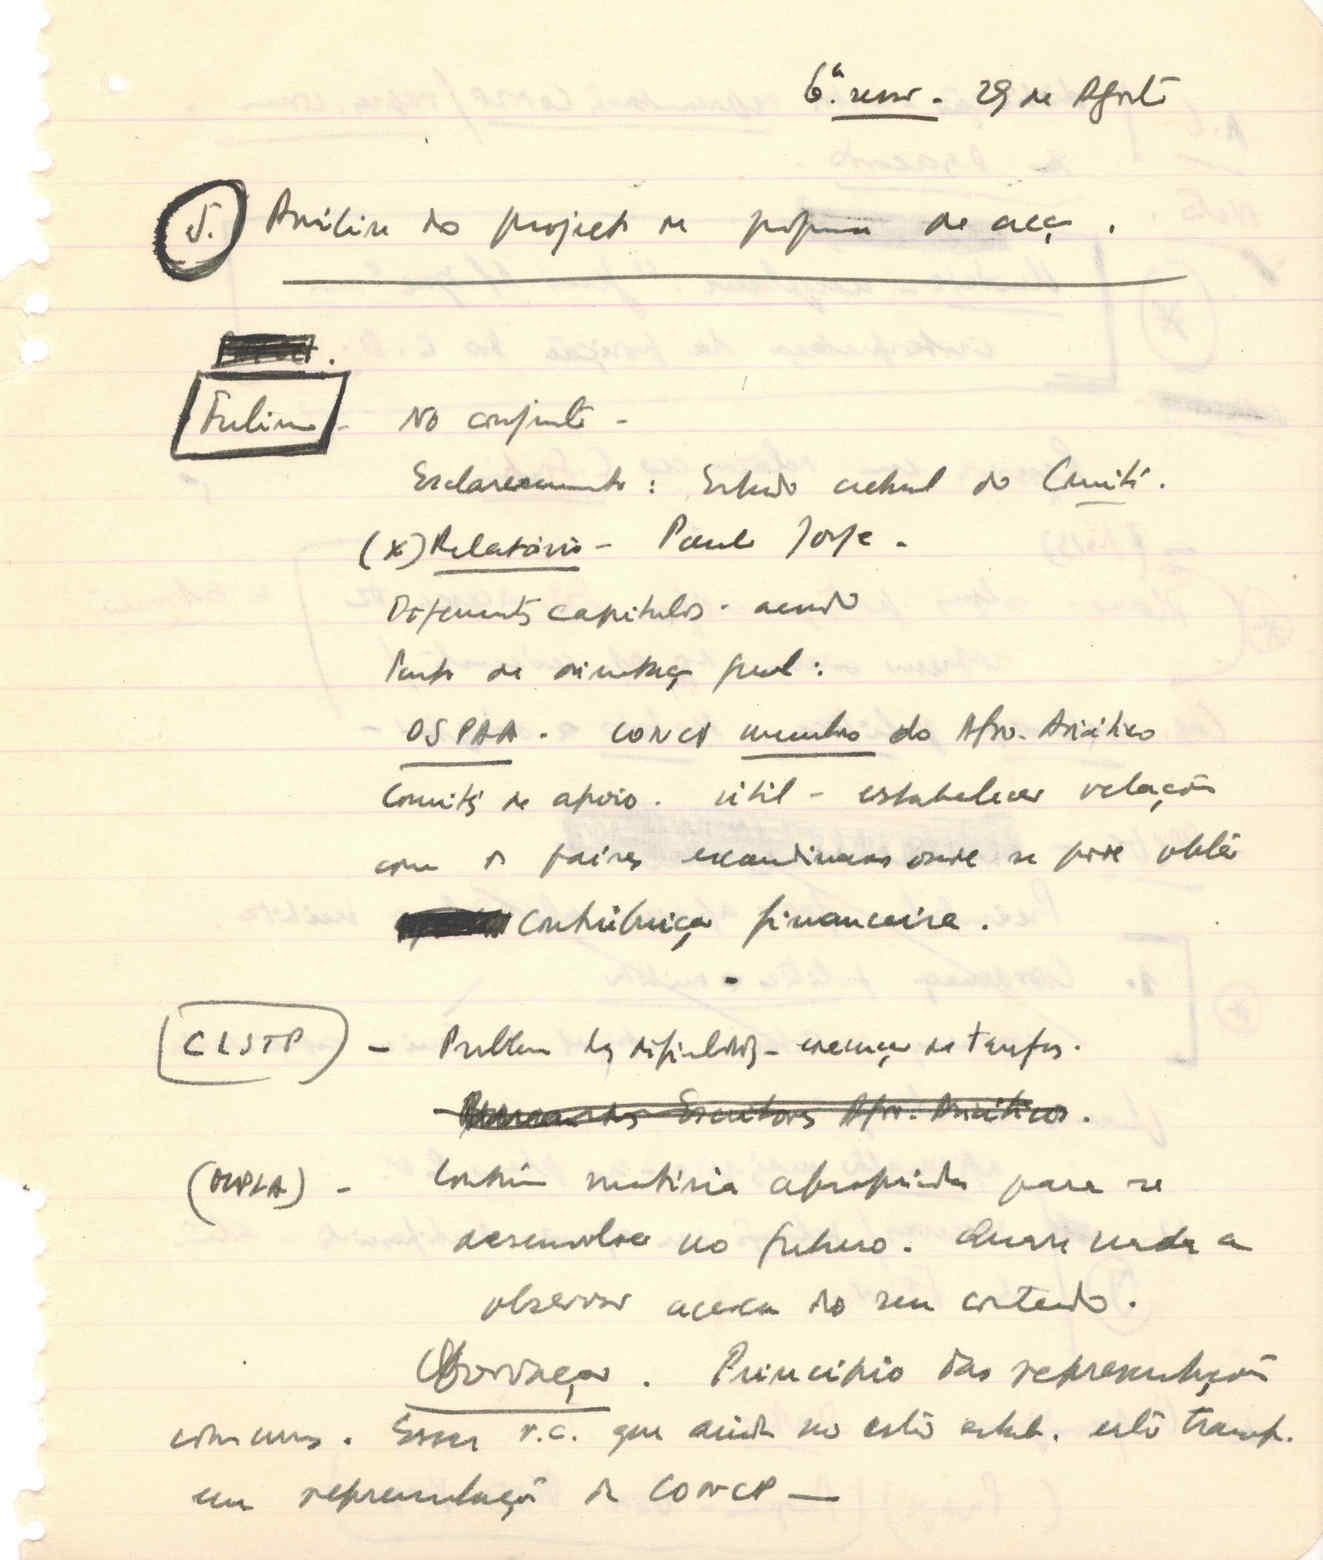 6ª. sessão - 29 de Agosto
5. Análise do projecto de programa de acção.
Frelimo - No conjunto -
Esclarecimento: Estado actual do Comité.
(x) Relatório - Paulo Jorge.
Diferentes capítulos - acordo
Ponto de orientação geral:
OSPAA. CONCP membro do Afro-Asiático
Comités de apoio. útil - estabelecer relações
com os países escandinavos onde se pode obter
contribuição financeira.
CLSTP - Problema das dificuldades - de tarefas.
Escritores Afro-Asiáticos.
(MPLA) - Contém matéria apropriada para se
desenvolver no futuro. Quase nada a
observar acerca do seu conteudo.
Coordenação. Princípio das representações
comuns. Essas r.c. que ainda não estão estab. estão transf.
em representação da CONCP —